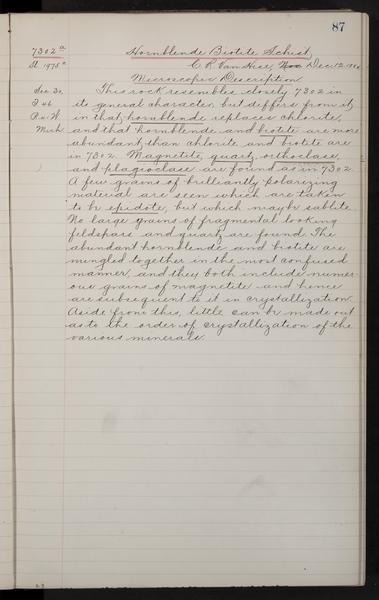 87
7302a Hornblende Biotite Schist
Sl. 1975 C. R. Van Hise, Dec. 12,
Microscopic Description
Sec. 30, This rock resembles closely 7302 in
T 46 its general character but differs from it
R W. in that hornblende replaces chlorite,
Mich. and that hornblende and biotite are more
abundant than chlorite and biotite are
in 7302. Magnetite, quartz, orthoclase,
and plagioclase are found as in 7302.
A few grains of brilliantly polarizing
material are seen which are taken
to be epidote, but which may be sahlite.
No large grains of fragmental looking
feldspars and quartz are found. The
abundant hornblende and biotite are
mingled together in the most confused
manner, and they both include numer-
ous grains of magnetite and hence
are subsequent to it in crystallization.
Aside from this, little can be made out
as to the order of crystallization of the
various minerals.